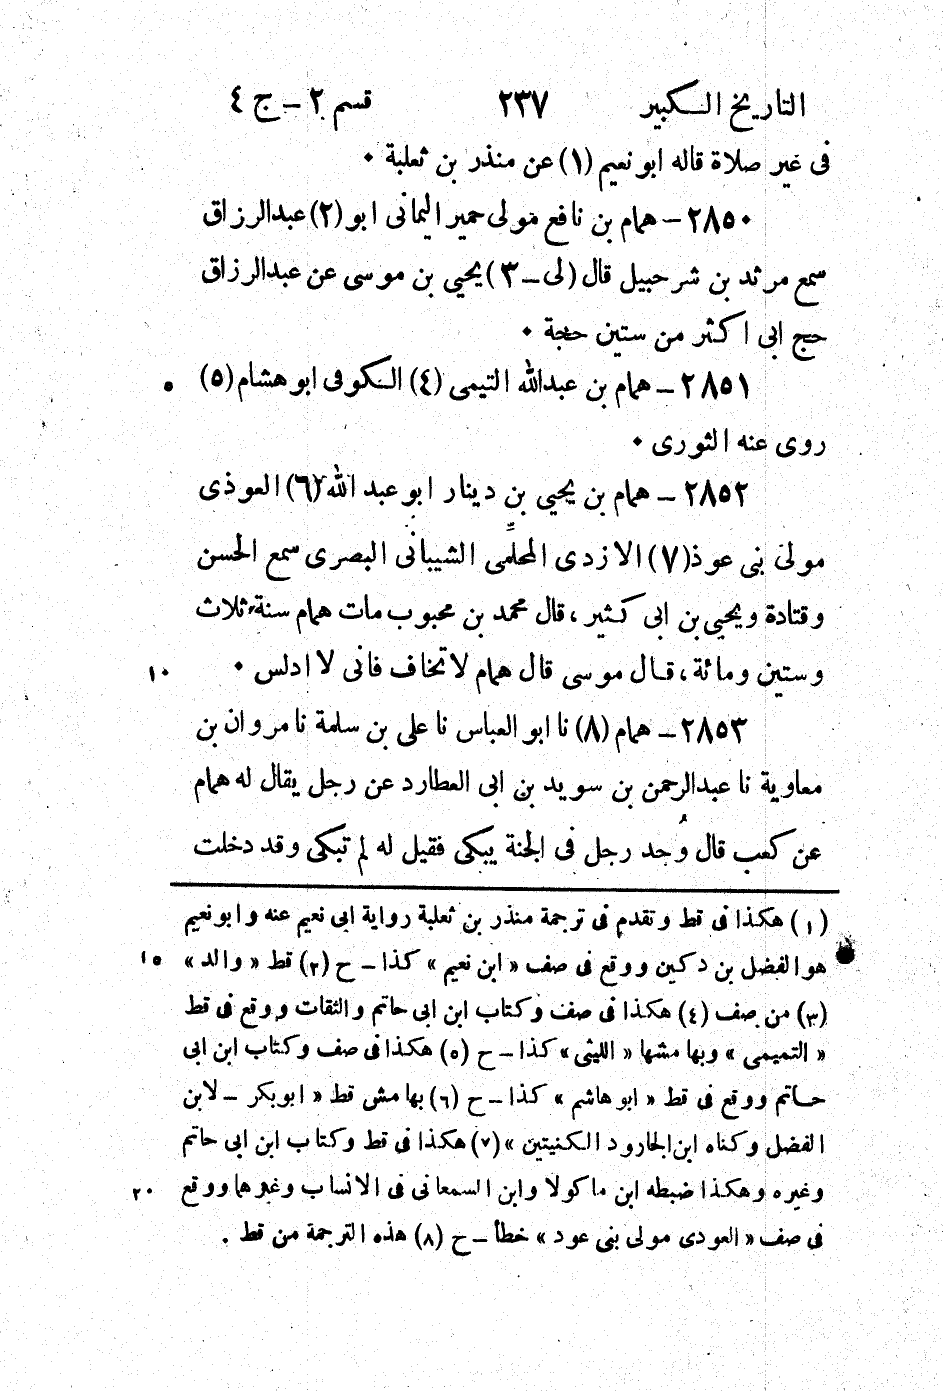 التاريخ الكبير ٢٣٧ قسم ٢ – ج ٤
فى غير صلاة قاله ابو نعيم (١) عن منذر بن ثعلبة ٠
٢٨٥٠ – همام بن نافع مولى حمير اليمانى ابو (٢) عبدالرزاق
سمع مرثد بن شرحبيل قال (لى – ٣) يحيى بن موسى عن عبدالرزاق
حج ابى اكثر من ستين حجة ٠
٢٨٥١ – همام بن عبدالله التيمى (٤) الكوفى ابو هشام (٥) ٥
روى عنه الثورى ٠
٢٨٥٢ – همام بن يحيى بن دينار ابو عبد الله (٦) العوذى
مولى بنى عوذ (٧) الازدى المحلّمى الشيبانى البصرى سمع الحسن
وقتادة ويحيى بن ابى كثير ، قال محمد بن محبوب مات همام سنة ثلاث
وستين ومائة ، قال موسى قال همام لا تخاف فانى لا ادلس ٠ ١٠
٢٨٥٣ – همام (٨) نا ابو العباس نا على بن سلمة نا مروان بن
معاوية نا عبدالرحمن بن سويد بن ابى العطارد عن رجل يقال له همام
عن كعب قال وُجد رجل فى الجنة يبكى فقيل له لم تبكى وقد دخلت
(١) هكذا فى قط وتقدم فى ترجمة منذر بن ثعلبة رواية ابى نعيم عنه وابو نعيم
هو الفضل بن دكين ووقع فى صف « ابن نعيم » كذا – ح (٢) قط « والد » ١٥
(٣) من صف (٤) هكذا فى صف وكتاب ابن ابى حاتم والثقات ووقع فى قط
« التميمى » وبهامشها « الليثى » كذا – ح (٥) هكذا فى صف وكتاب ابن ابى
حاتم ووقع فى قط « ابو هاشم » كذا – ح (٦) بهامش قط « ابو بكر – لابن
الفضل وكناه ابن الجارود الكنيتين » (٧) هكذا فى قط وكتاب ابن ابى حاتم
وغيره وهكذا ضبطه ابن ماكولا وابن السمعانى فى الانساب وغيرها ووقع ٢٠
فى صف « العودى مولى بنى عود » خطأ – ح (٨) هذه الترجمة من قط .